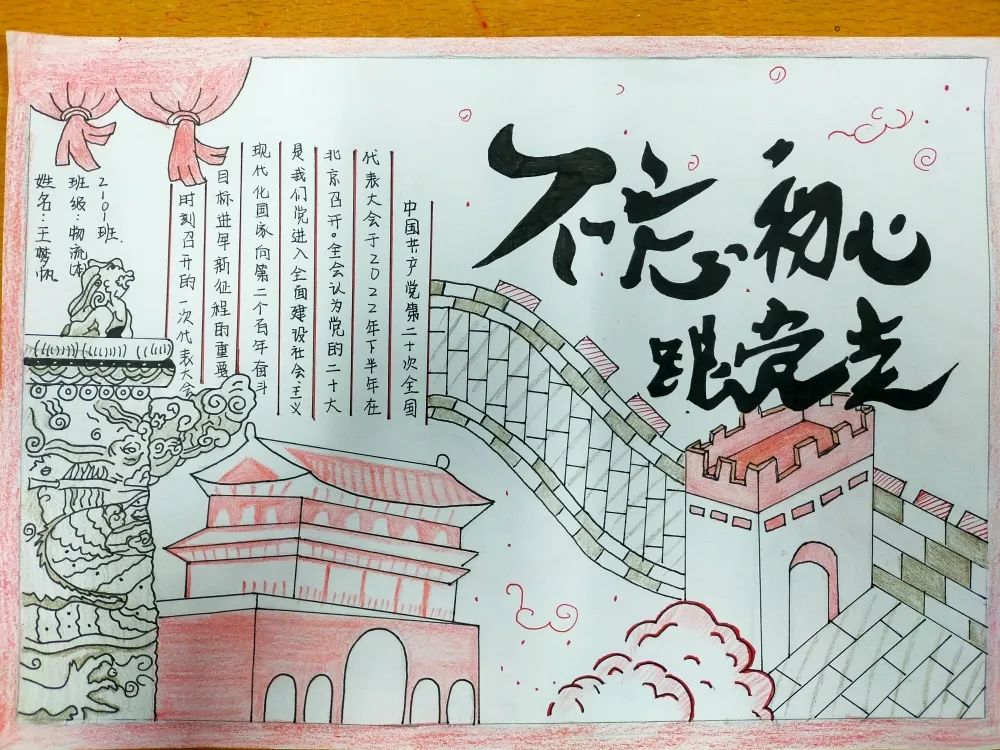 不忘初心
跟党走
中国共产党第二十次全国
代表大会于2022年下半年在
北京召开。全会认为党的二十大
是我们党进入全面建设社会主义
现代化国家向第二个百年奋斗
目标进军新征程的重要
时刻召开的一次代表大会
2101班.
班级:物流
姓名:王梦帆